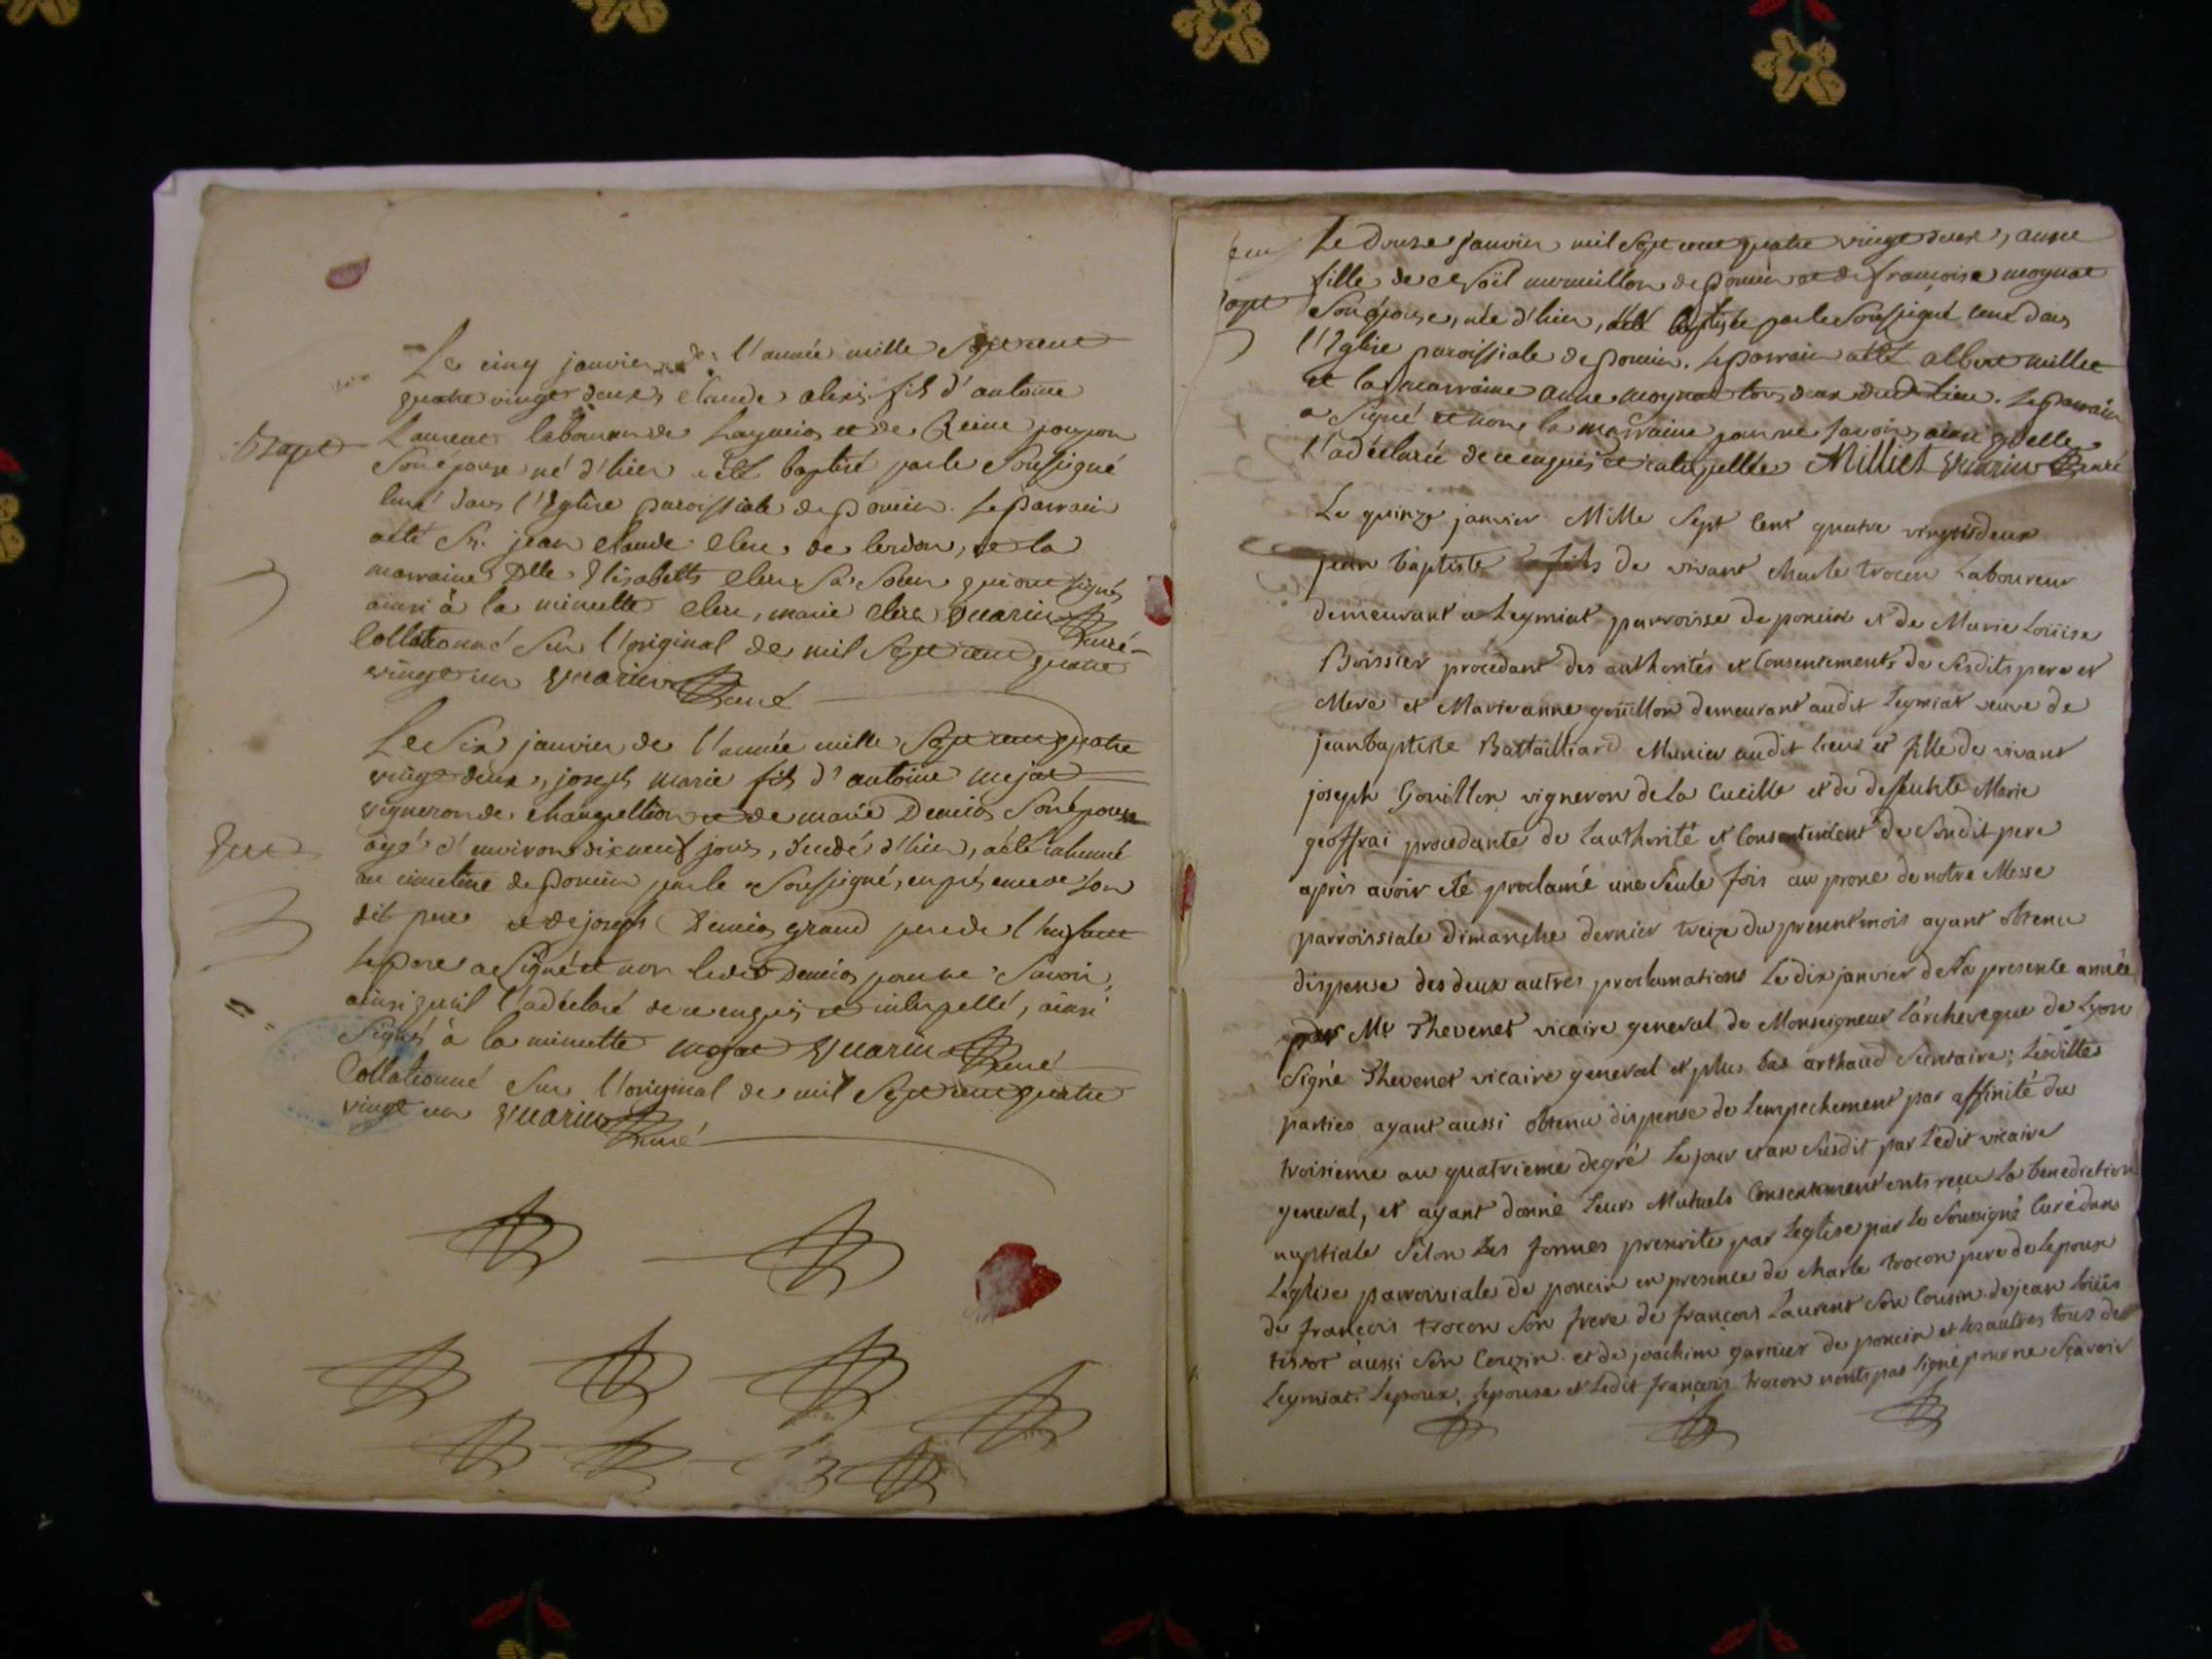 Le cinq janvier de l'année mille sept cent
quatre vingt deux, claude alexis fils d'antoine
Laurent laboureur de Leymiat et de Reine
Bapt
son épouse né d'hier a été baptisé par le soussigné
curé dans l'Eglise paroissiale de poncin. Le parrain
a été Sr. jean claude clerc de cerdon, et la
marraine Dlle Elisabeth clerc sa soeur qui ont signés
ainsi à la minutte clerc, marie clerc quarin curé
Collationné sur l'original de mil sept cent quatre
vingt un quarin curé
Le six janvier de l'année mille sept cent quatre
vingt deux, joseph marie fils d'antoine mejat
vigneron de champeillion et de marie Demia son épouse
âgé d'environ dix neuf jours, décédé d'hier, a été inhumé
au cimetiere de poncin par le soussigné, en présence de son
dit pere et de joseph Demia grand pere de l'enfant
le pere a signé et non ledit Demia pour ne savoir,
ainsi qu'il l'a déclaré de ce enquis et interpellé, ainsi
signés à la minutte mejat quarin curé
Collationné sur l'original de mil sept cent quatre
vingt un quarin curé
Le douze janvier mil sept cent quatre vingt deux, anne
fille de de poncin et de françoise moynat
bapt
son épouse, née d'hier, a été baptisée par le soussigné curé dans
l'Eglise paroissiale de poncin. Le parrain a été albert milliet
et la marraine anne moynat tous deux dudt lieu. Le parrain
a signé et non la marraine pour ne savoir, ainsi qu'elle
l'a déclaré de ce enquis et interpellée Milliet quarin curé
Le quinze janvier Mille sept cent quatre vingts deux
jean baptiste fils de vivant charle trocon Laboureur
demeurant a Leymiat parroisse de poncin et de Marie Loüise
Boissier procedant des authorités et Consentements de sesdits pere et
Mere et Marieanne goüillon demeurant audit Leymiat veuve de
jeanbaptiste Battailliard Munier audit lieu et fille de vivant
joseph Goüillon vigneron de la Cueille et de deffeunte Marie
geoffrai procedante de l'authorité et Consentement de sondit pere
après avoir été proclamé une seule fois au prone de notre Messe
parroissiale dimanche dernier treize du present mois ayant obtenu
dispense des deux autres proclamations Le dix janvier de la presente année
par Mr Thevenet vicaire general de Monseigneur l'archeveque de Lyon
signé Thevenet vicaire general et plus bas arthaud secretaire; Lesdittes
parties ayant aussi obtenu dispense de l'empechement par affinité du
troisieme au quatrieme degré le jour et an susdit par ledit vicaire
general, et ayant donné leurs Mutuels Consentement onts reçu la benediction
nuptiale selon les formes prescrite par l'eglise par le soussigné Curé dans
l'eglise parroissiale de poncin en presence de charle trocon pere de l'epoux
de françois trocon son frere de françois Laurent son Cousin de jean loüis
tissot aussi son Couzin et de joachim garnier de poncin et les autres tous de
Leymiat. L'epoux, l'epouse et ledit françois trocon n'onts pas signé pour ne sçavoir